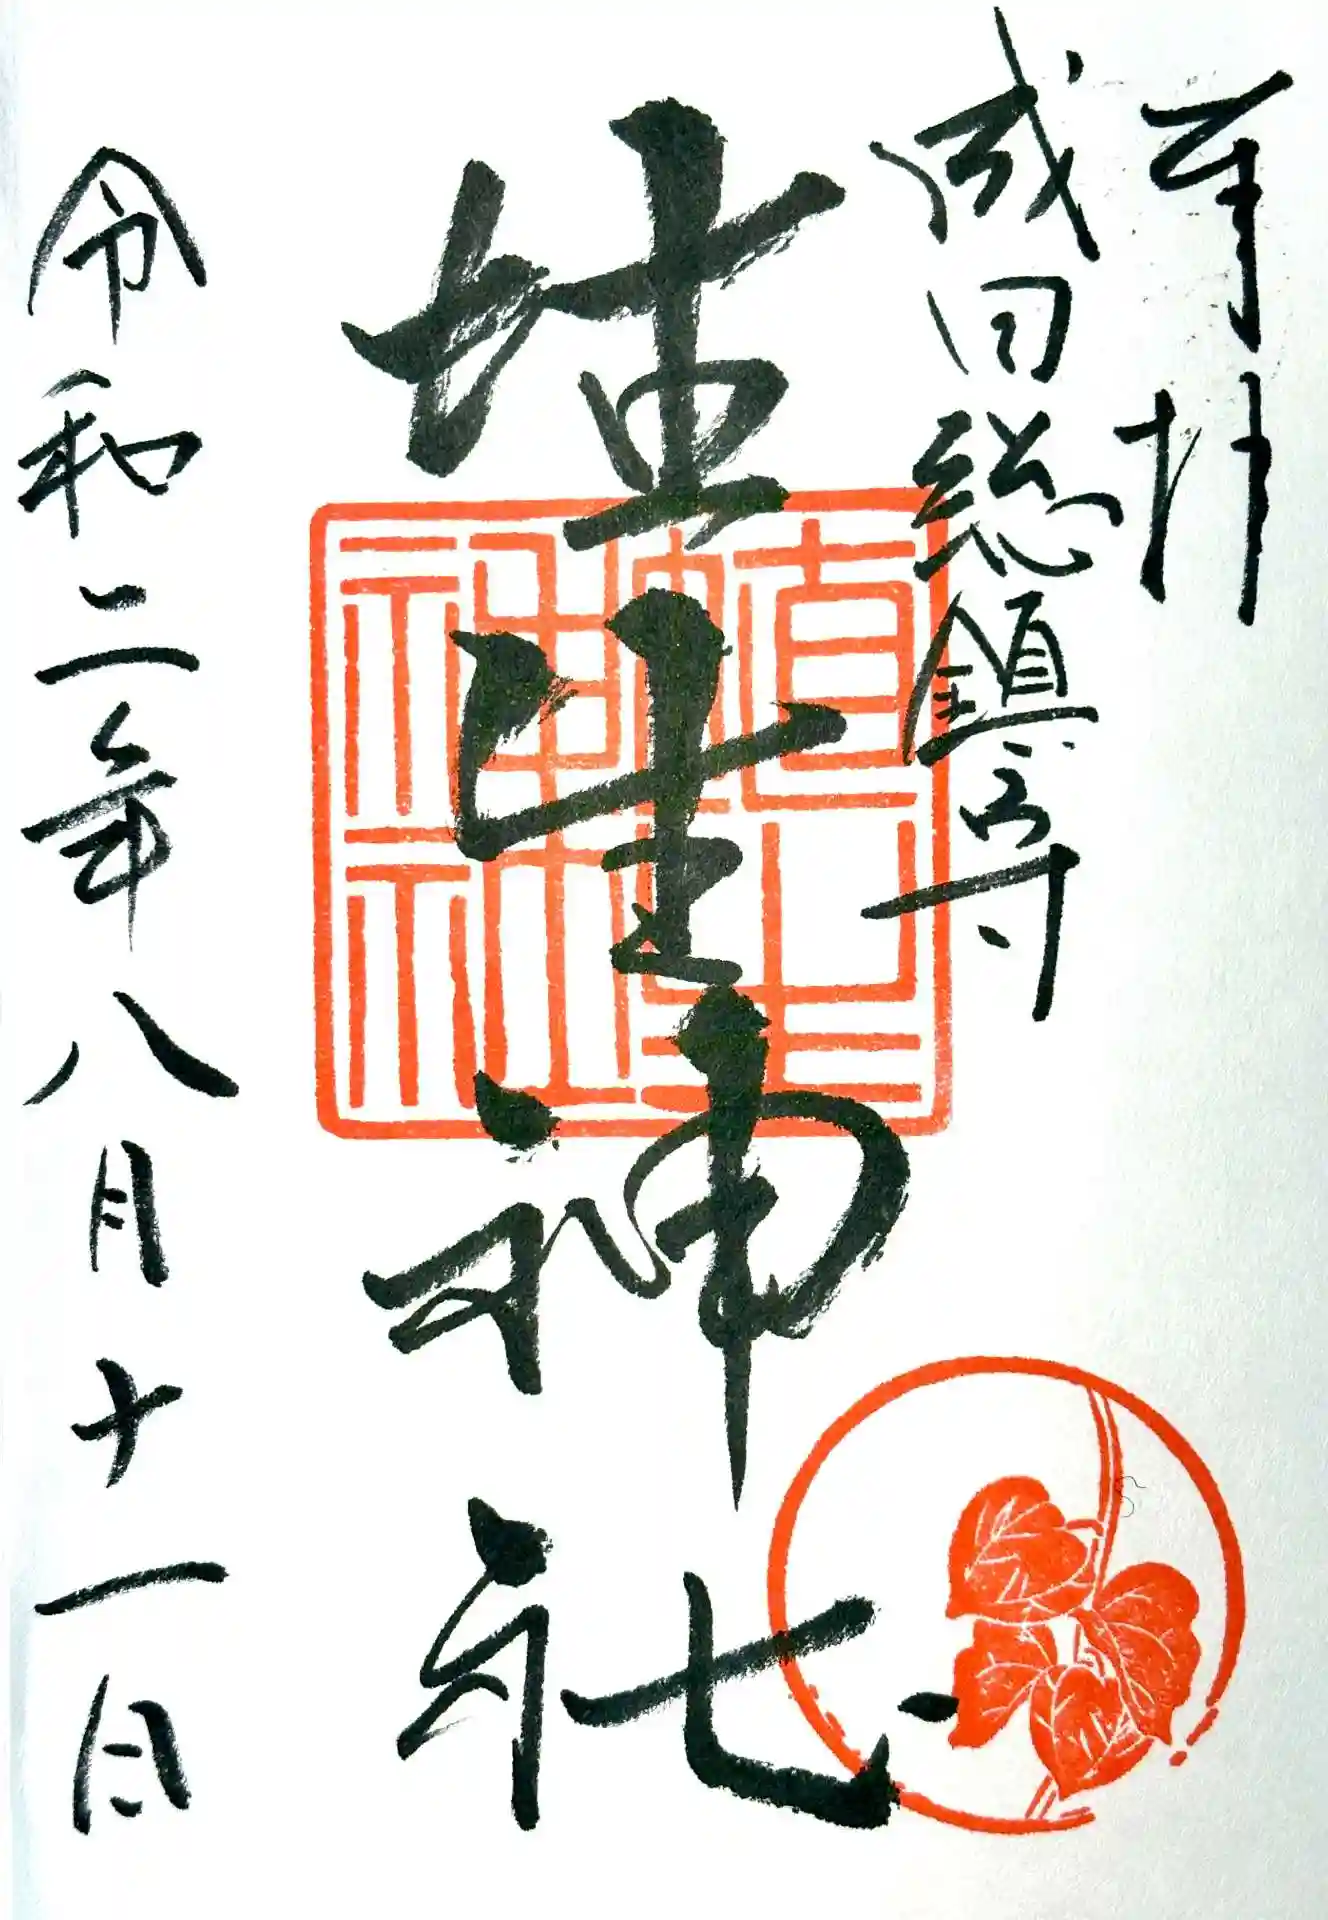 奉拝
成田総鎮守
埴生神社
埴生神社
令和二年八月十一日